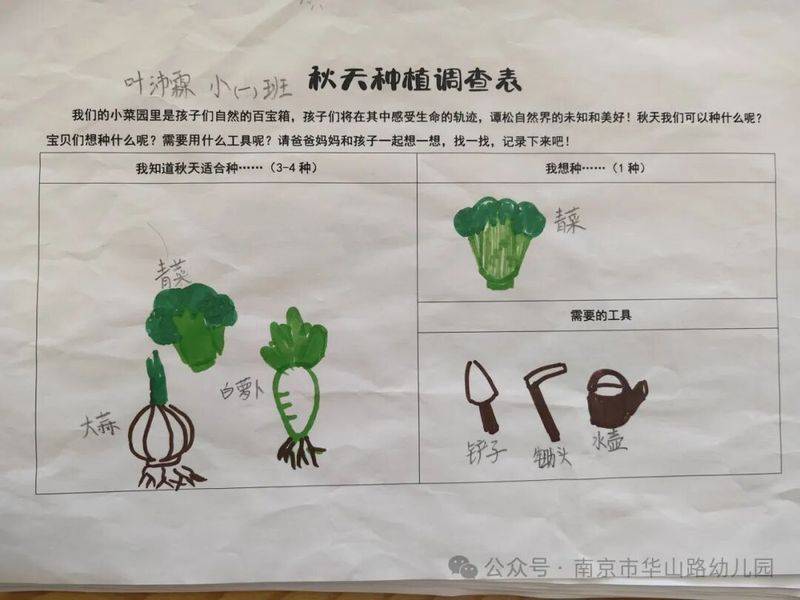 叶沛霖 小(一)班 秋天种植调查表
我们的小菜园里是孩子们自然的百宝箱，孩子们将在其中感受生命的轨迹，谭松自然界的未知和美好！秋天我们可以种什么呢？
宝贝们想种什么呢？需要用什么工具呢？请爸爸妈妈和孩子一起想一想，找一找，记录下来吧！
我知道秋天适合种……（3-4 种）
我想种……（1 种）
青菜
青菜
白萝卜
大蒜
需要的工具
铲子 锄头 水壶
公众号·南京市华山路幼儿园